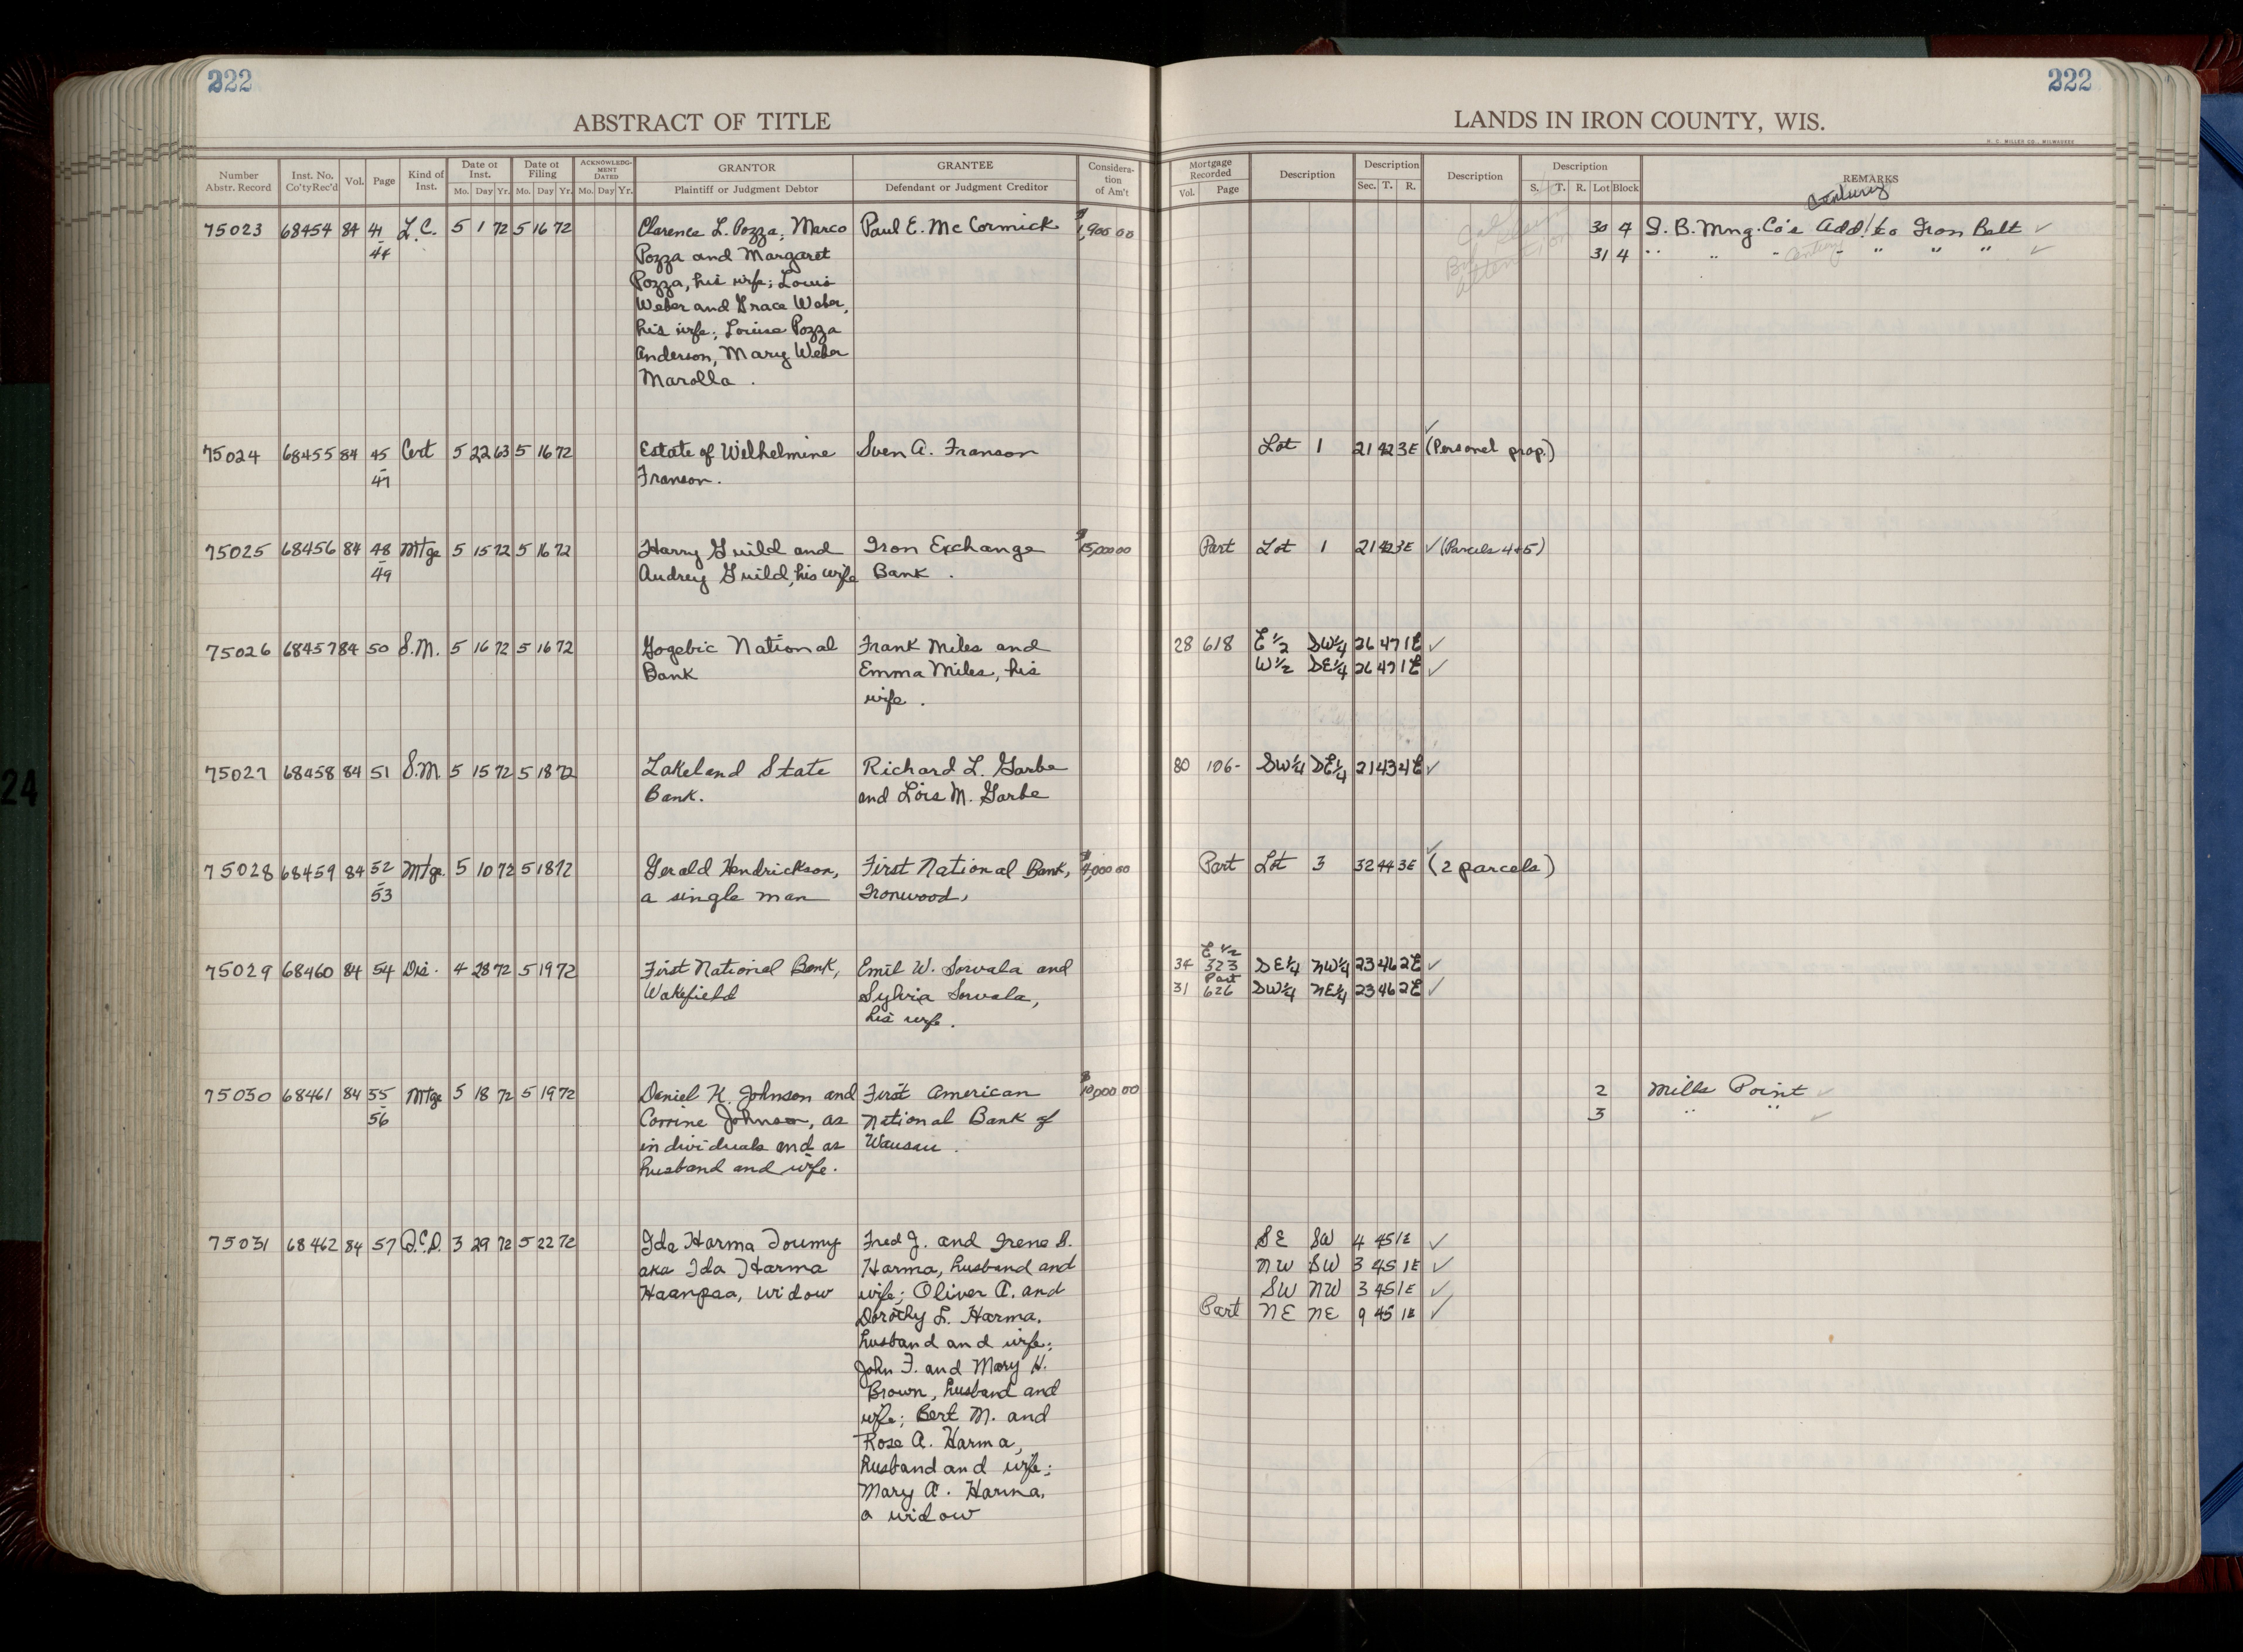 222
222
ABSTRACT OF TITLE
LANDS IN IRON COUNTY, WIS.
H. C. MILLER CO., MILWAUKEE
Number Abstr. Record
Inst. No. Co'ty Rec'd
Vol.
Page
Kind of Inst.
Date of Inst. Mo. Day Yr.
Date of Filing Mo. Day Yr.
ACKNOWLEDGMENT DATED Mo. Day Yr.
GRANTOR Plaintiff or Judgment Debtor
GRANTEE Defendant or Judgment Creditor
Consideration of Am't
Mortgage Recorded Vol. Page
Description
Description Sec. T. R.
Description
Description S. T. R. Lot Block
REMARKS
Century
75023 68454 84 41 L.C. 5 1 72 5 16 72 Clarence L. Pozza; Marco Paul E. McCormick $1,900 00 30 4 I. B. Mng. Co's Add. to Iron Belt ✓
44 Pozza and Margaret 31 4 " " " " " " ✓
Pozza, his wife; Louis
Weber and Grace Weber,
his wife; Louise Pozza
Anderson, Mary Weber
Marolla.
75024 68455 84 45 Cert 5 22 63 5 16 72 Estate of Wilhelmine Sven A. Franson Lot 1 21 42 3E (Personal prop.) ✓
47 Franson.
75025 68456 84 48 Mtge 5 15 72 5 16 72 Harry Guild and Iron Exchange $15,000 00 Part Lot 1 21 42 3E ✓ (Parcels 4+5)
49 Audrey Guild, his wife Bank.
75026 68457 84 50 S.M. 5 16 72 5 16 72 Gogebic National Frank Miles and 28 618 E 1/2 SW 1/4 26 47 1E ✓
Bank Emma Miles, his W 1/2 SE 1/4 26 47 1E ✓
wife.
75027 68458 84 51 S.M. 5 15 72 5 18 72 Lakeland State Richard L. Garbe 80 106- SW 1/4 SE 1/4 21 43 4E ✓
Bank. and Lois M. Garbe
75028 68459 84 52 Mtge. 5 10 72 5 18 72 Gerald Hendrickson, First National Bank, $4,000 00 Part Lot 3 32 44 3E (2 parcels) ✓
53 a single man Ironwood,
E 1/2
75029 68460 84 54 Dis. 4 28 72 5 19 72 First National Bank, Emil W. Sorvala and 34 323 SE 1/4 NW 1/4 23 46 2E ✓
Part
Wakefield Sylvia Sorvala, 31 626 SW 1/4 NE 1/4 23 46 2E ✓
his wife.
75030 68461 84 55 Mtge 5 18 72 5 19 72 Daniel K. Johnson and First American $10,000 00 2 Mills Point ✓
56 Corrine Johnson, as National Bank of 3 " " ✓
individuals and as Wausau.
husband and wife.
75031 68462 84 57 Q.C.D. 3 29 72 5 22 72 Ida Harma Toumy Fred J. and Irene B. SE SW 4 45 1E ✓
aka Ida Harma Harma, husband and NW SW 3 45 1E ✓
Haanpaa, widow wife; Oliver A. and SW NW 3 45 1E ✓
Dorothy L. Harma, Part NE NE 9 45 1E ✓
husband and wife;
John F. and Mary H.
Brown, husband and
wife; Bert M. and
Rose A. Harma,
husband and wife;
Mary A. Harma,
a widow
24